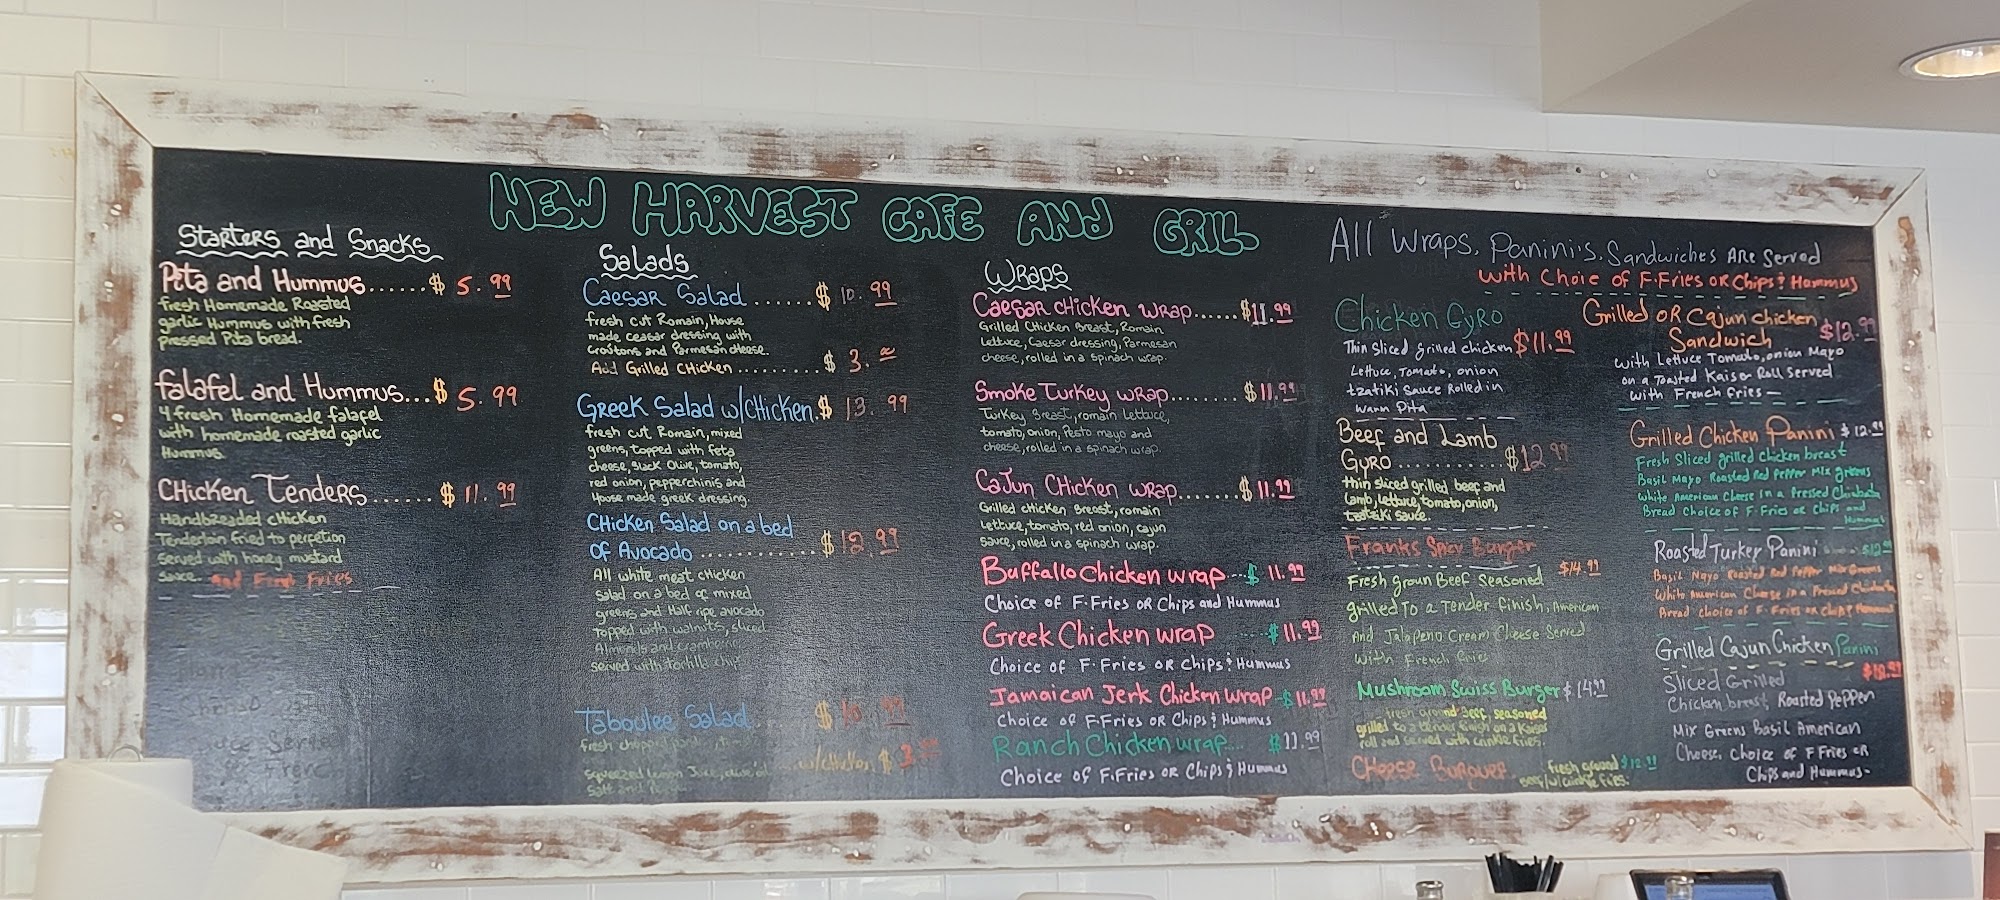 NEW HARVEST CAFE AND GRILL
Starters and Snacks
Pita and Hummus......$ 5.99
fresh Homemade Roasted
garlic Hummus with fresh
pressed Pita bread.
falafel and Hummus...$ 5.99
4 fresh Homemade falafel
with homemade roasted garlic
Hummus.
CHicken Tenders......$ 11.99
Handbreaded cHicken
Tenderloin fried to perfetion
served with honey mustard
sauce. and Fresh Fries
Salads
Caesar Salad.......$ 10.99
fresh cut Romain, House
made ceasar dressing with
croutons and Parmesan cheese.
Add Grilled CHicken..........$ 3.
Greek Salad w/CHicken.$ 13.99
fresh cut Romain, mixed
greens, topped with feta
cheese, Black Olive, tomato,
red onion, pepperchinis and
House made greek dressing.
CHicken Salad on a bed
Of Avocado............$ 12.99
All white meat cHicken
Salad on a bed of mixed
greens and Half ripe avocado
topped with walnuts, sliced
Almonds and
served with tortilla chip
Taboulee Salad. $ 10.99
fresh chopped
w/CHicken $ 3
squeezed Lemon Juice, olive oil
Salt and
Wraps
Caesar cHicken wrap......$11.99
Grilled CHicken Breast, Romain
Lettuce, Caesar dressing, Parmesan
cheese, rolled in a spinach wrap.
Smoke Turkey wrap.........$11.99
Turkey Breast, romain Lettuce,
tomato, onion, Pesto mayo and
cheese, rolled in a spinach wrap.
Cajun CHicken wrap.......$11.99
Grilled cHicken Breast, romain
Lettuce, tomato, red onion, cajun
sauce, rolled in a spinach wrap.
Buffallo Chicken wrap...$ 11.99
Choice of F.Fries OR Chips and Hummus
Greek Chicken wrap ....$11.99
Choice of F.Fries OR Chips & Hummus
Jamaican Jerk Chicken wrap-$11.99
Choice of F.Fries OR Chips & Hummus
Ranch Chicken wrap... $11.99
Choice of F.Fries OR Chips & Hummus
All Wraps, Panini's, Sandwiches Are Served
with Choie of F.Fries OR Chips & Hummus
Chicken Gyro
Thin Sliced grilled chicken $11.99
Lettuce, Tomato, onion
tzatiki Sauce Rolled in
warm Pita
Beef and Lamb
Gyro..........$12.99
thin sliced grilled beef and
Lamb, lettuce, tomato, onion,
sauce.
Franks Spicy Burger
$14.99
Fresh groun Beef Seasoned
grilled To a Tender finish, American
And Jalapeno Cream Cheese Served
with French fries
Mushroom Swiss Burger $14.99
fresh ground Beef, seasoned
grilled to a tender finish on a Kaiser
roll and served with crinkle fries.
Cheese Burguer fresh ground $12.99
beef/w/crinkle fries.
Grilled OR Cajun chicken
Sandwich $12.99
with Lettuce Tomato, onion Mayo
on a Toasted Kaiser Roll Served
with French fries
Grilled Chicken Panini $12.99
Fresh Sliced grilled chicken breast
Basil Mayo Roasted Red Pepper Mix greens
White American Cheese In a Pressed
Bread Choice of F.Fries or Chips and
Hummus
Roasted Turkey Panini $12.99
Basil Mayo Roasted Red Pepper Mix Greens
White American Cheese in a Pressed
Bread Choice of F.Fries or Chips Hummus
Grilled Cajun Chicken Panini
$12.99
Sliced Grilled
Chicken breast, Roasted Pepper
Mix Greens Basil American
Cheese, Choice of F Fries OR
Chips and Hummus-